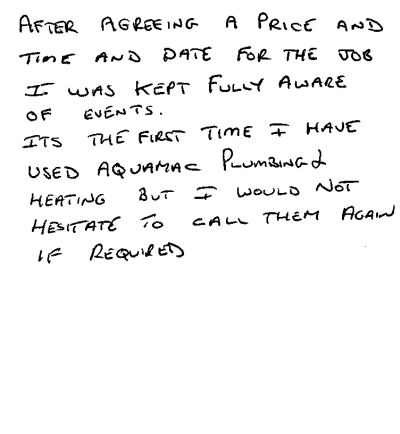 AFTER AGREEING A PRICE AND
TIME AND DATE FOR THE JOB
I WAS KEPT FULLY AWARE
OF EVENTS.
ITS THE FIRST TIME I HAVE
USED AQUAMAC PLUMBING &
HEATING BUT I WOULD NOT
HESITATE TO CALL THEM AGAIN
IF REQUIRED